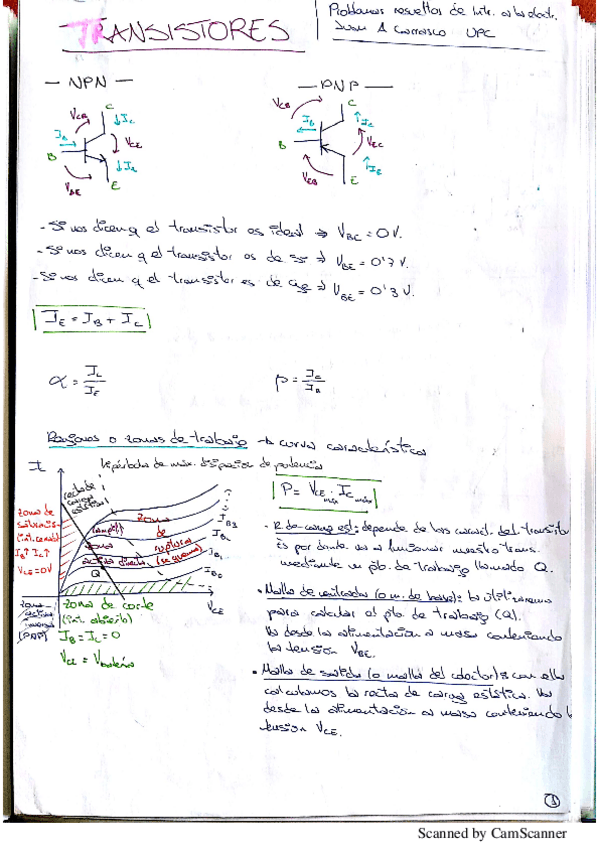 TRANSISTORES
Problemas resueltos de
Juan A Carrasco UPC
— NPN —
— PNP —
VCB
C
IC
IB
B
VCE
VBE
IE
E
VCB
C
IB
IC
B
VEC
IE
E
- Si nos dicen q el transistor es ideal ⇒ VBC = 0V.
- Si nos dicen q el transistor es de Si ⇒ VBE = 0'7 V.
- Si nos dicen q el transistor es de Ge ⇒ VBE = 0'3 V.
IE = IB + IC
α = IC / IE
β = IC / IB
Regiones o zonas de trabajo → curva característica
Hipérbola de máx. disipación de potencia
I
P = VCE mín · IC máx
recta de carga estática
zona de
(int. cerrado)
IB↑ IC↑
VCE = 0V
zona
de
ruptura
(se quema)
activa directa
Q
IB3
IB2
IB1
IB0
VCE
zona
activa
inversa
(PNP)
zona de corte
(int. abierto)
IB = IC = 0
VCE = Vbatería
· R. de carga est: depende de las caract. del transist
Es por donde va a funcionar nuestro trans.
mediante un pto. de trabajo llamado Q.
· Malla de entrada (o m. de base): la utilizaremos
para calcular el pto. de trabajo (Q).
Va desde la alimentación a masa conteniendo
la tensión VBE.
· Malla de salida (o malla del colector): con ella
calculamos la recta de carga estática. Va
desde la alimentación a masa conteniendo l
tensión VCE.
1
Scanned by CamScanner